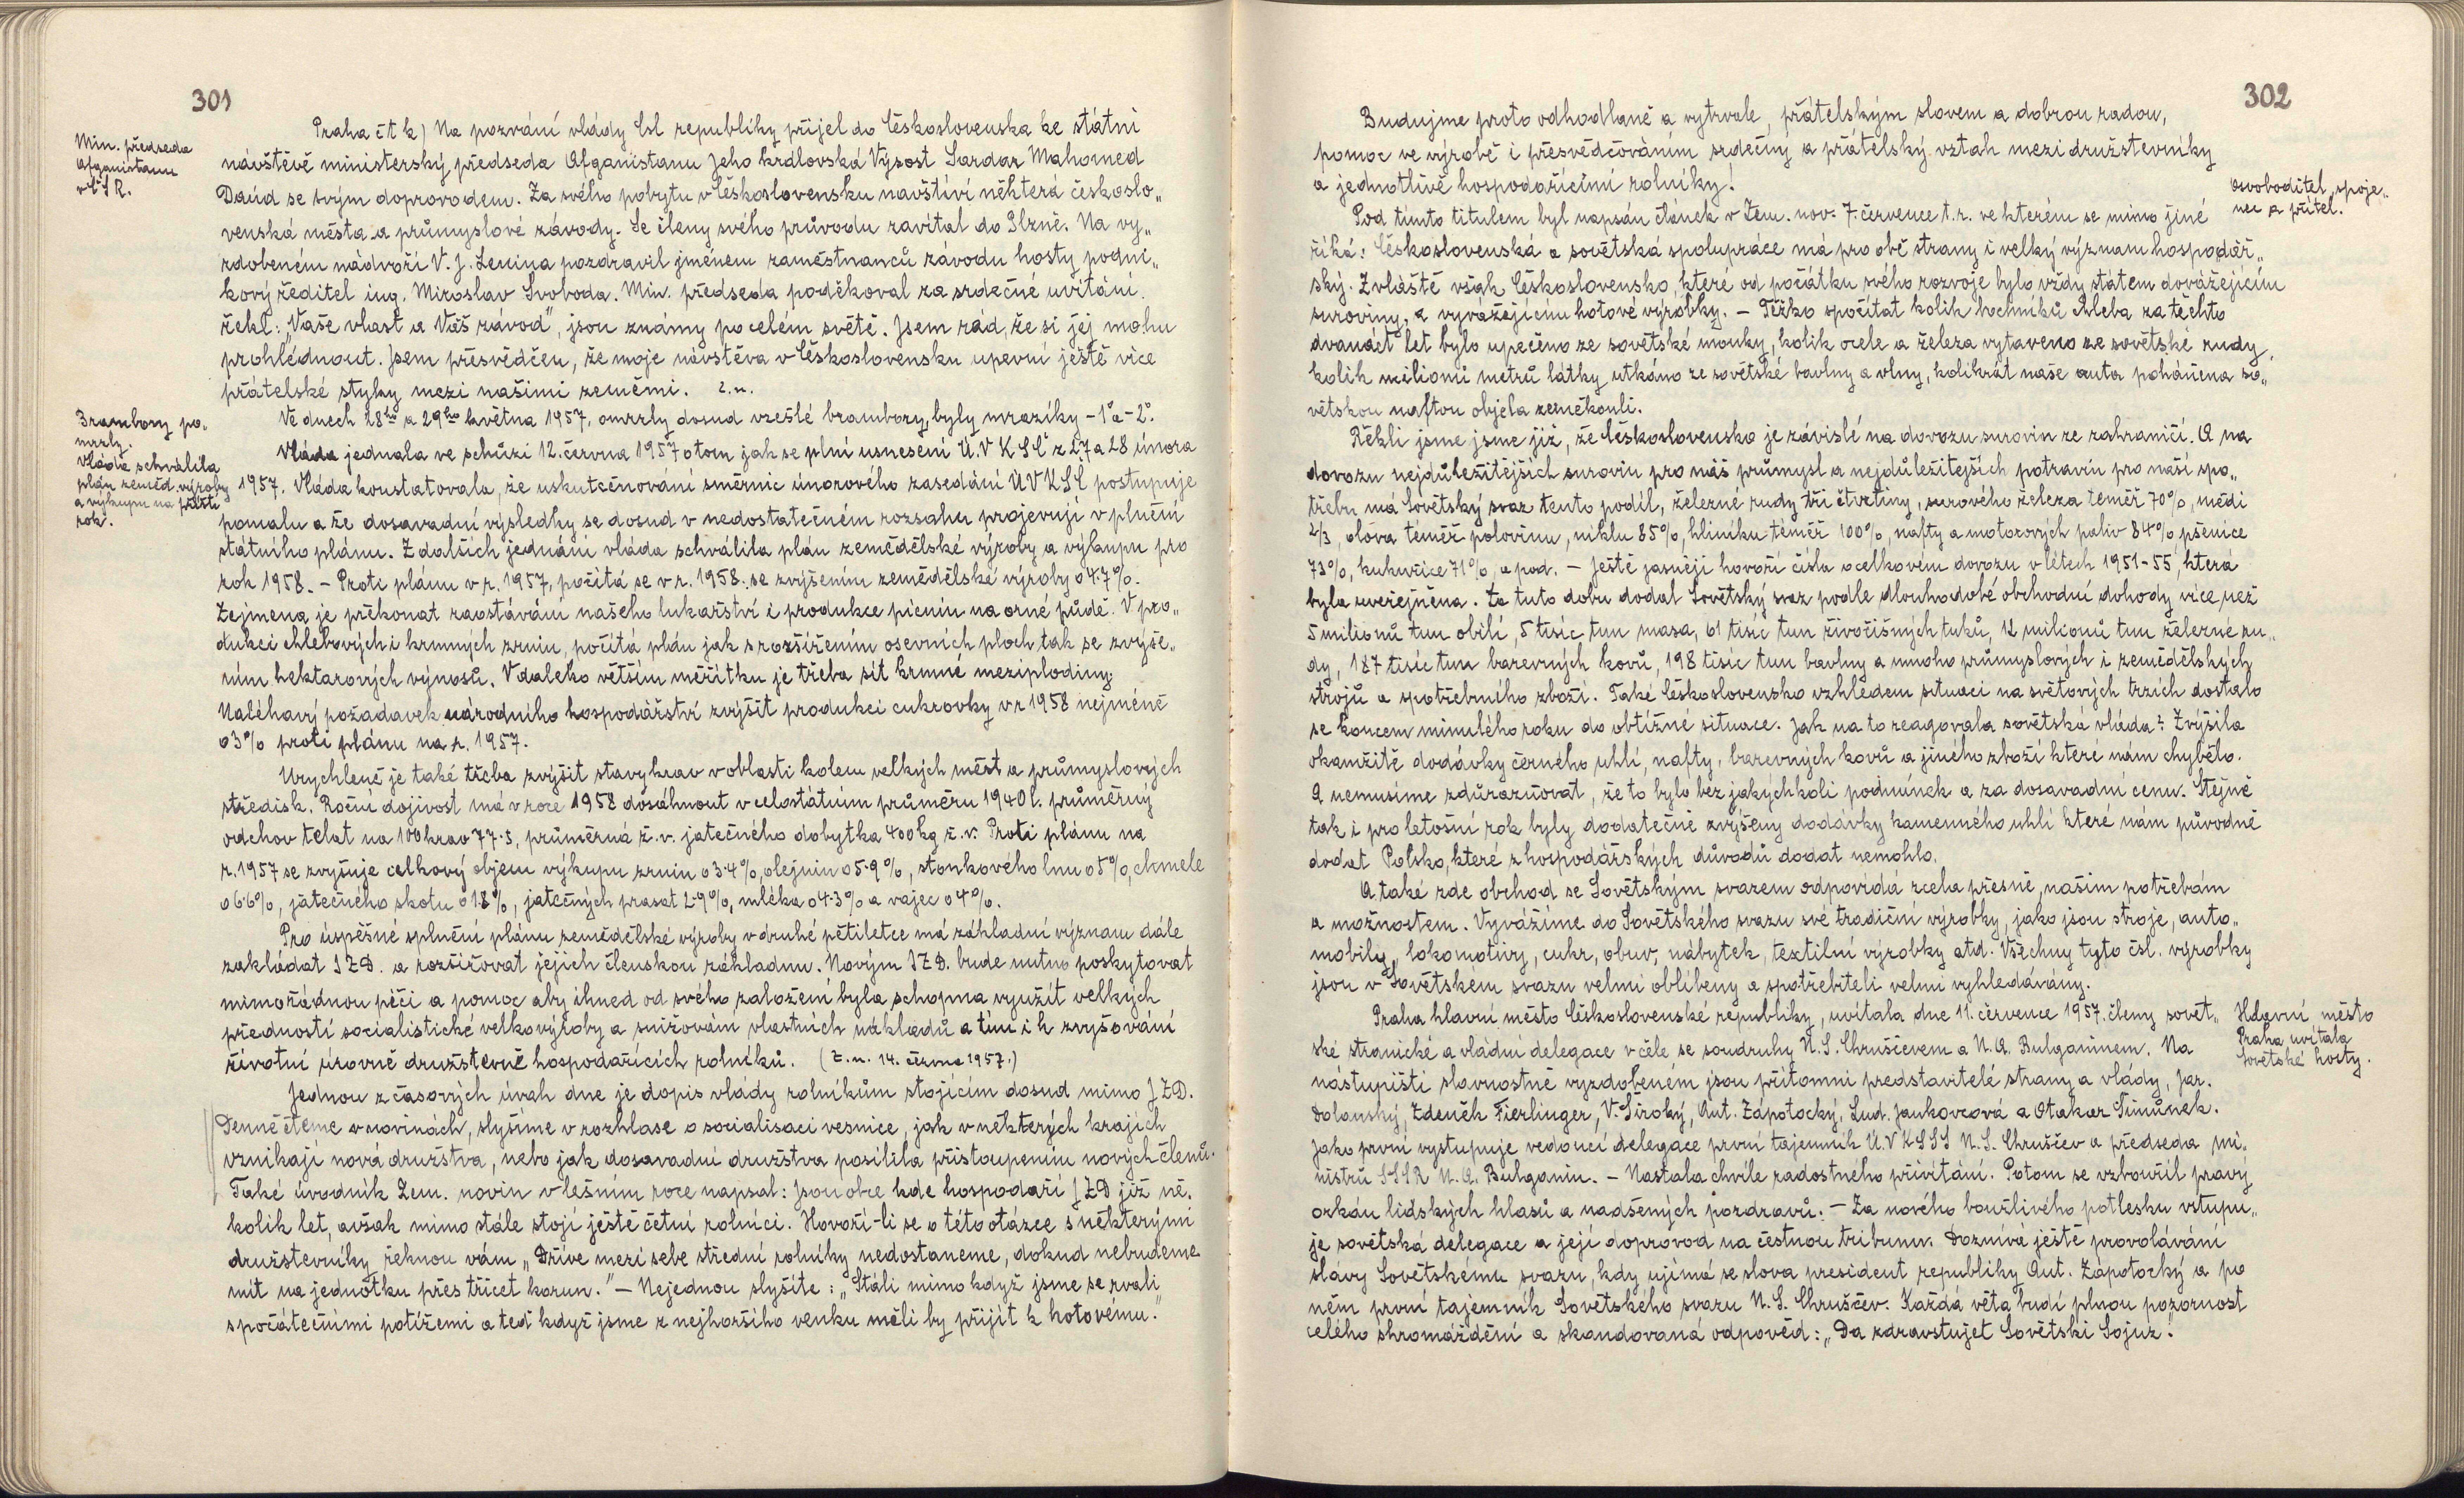 301
Min. předseda
Afganistanu
v ČSR.
Praha čtk) Na pozvání vlády čsl republiky přijel do Československa ke státní
návštěvě ministerský předseda Afganistanu Jeho královská Výsost Sardar Mahomed
Daúd se svým doprovodem. Za svého pobytu v Československu navštíví některá českoslo„
venská města a průmyslové závody. Se členy svého průvodu zavítal do Plzně. Na vy„
zdobeném nádvoří V. J. Lenina pozdravil jménem zaměstnanců závodu hosty podni„
kový ředitel ing. Miroslav Svoboda. Min. předseda poděkoval za srdečné uvítání.
řekl: „Vaše vlast a Váš závod", jsou známy po celém světě. Jsem rád, že si jej mohu
prohlédnout. Jsem přesvědčen, že moje návštěva v Československu upevní ještě více
přátelské styky mezi našimi zeměmi. z.n.
Brambory po„
mrzly.
Ve dnech 28ho a 29ho května 1957, omrzly dosud vzešlé brambory, byly mrazíky -1°a -2°.
Vláda schválila
plán zeměd. výroby
a výkupu na příští
rok.
Vláda jednala ve schůzi 12. června 1957 o tom jak se plní usnesení Ú.V KSČ z 27 a 28 února
1957. Vláda konstatovala, že uskutečnování směrnic únorového zasedání ÚV KSČ postupuje
pomalu a že dosavadní výsledky se dosud v nedostatečném rozsahu projevují v plnění
státního plánu. Z dalších jednání vláda schválila plán zemědělské výroby a výkupu pro
rok 1958. – Proti plánu v r. 1957, počítá se v r. 1958. se zvýšením zemědělské výroby o 4.7%.
Zejmena je překonat zaostávání našeho lukařství i produkce pícnin na orné půdě. V pro„
dukci chlebových i krmných zrnin, počítá plán jak s rozšířením osevních ploch, tak se zvýše„
ním hektarových výnosů. V daleko větším měřítku je třeba sít krmné meziplodiny.
Naléhavý požadavek národního hospodářství zvýšit produkci cukrovky v r 1958 nejméně
o 3% proti plánu na r. 1957.
Urychleně je také třeba zvýšit stavy krav v oblasti kolem velkých měst a průmyslových
středisk. Roční dojivost má v roce 1958 dosáhnout v celostátním průměru 1940 l. průměrný
odchov telat na 100 krav 77.5, průměrná ž.v. jatečného dobytka 400 kg ž.v. Proti plánu na
r. 1957 se zvyšuje celkový objem výkupu zrnin o 3.4%, olejnin o 5.9%, stonkového lnu o 5%, chmele
o 6.6%, jatečného skotu o 1.8%, jatečných prasat 2.9%, mléka o 4.3% a vajec o 4%.
Pro úspěšné splnění plánu zemědělské výroby v druhé pětiletce má základní význam dále
zakládat JZD. a rozšiřovat jejich členskou základnu. Novým JZD. bude nutno poskytovat
mimořádnou péči a pomoc aby ihned od svého založení byla schopna využít velkých
předností socialistické velkovýroby a snižování vlastních nákladů a tím i k zvyšování
životní úrovně družstevně hospodařících rolníků. (Z.n. 14. června 1957.)
Jednou z časových úvah dne je dopis vlády rolníkům stojícím dosud mimo JZD.
Denně čteme v novinách, slyšíme v rozhlase o socialisaci vesnice, jak v některých krajích
vznikají nová družstva, nebo jak dosavadní družstva posílila přistoupením nových členů.
Také úvodník Zem. novin v lešním roce napsal: Jsou obce kde hospodaří JZD již ně„
kolik let, avšak mimo stále stojí ještě četní rolníci. Hovoří-li se o této otázce s některými
družstevníky řeknou vám „Dříve mezi sebe střední rolníky nedostaneme, dokud nebudeme
mít na jednotku přes třicet korun." – Nejednou slyšíte: „Stáli mimo když jsme se rvali
s počátečními potížemi a teď když jsme z nejhoršího venku měli by přijít k hotovému."
302
Budujme proto odhodlaně a vytrvale, přátelským slovem a dobrou radou,
pomoc ve výrobě i přesvědčováním srdečný a přátelský vztah mezi družstevníky
a jednotlivě hospodařícími rolníky!
Osvoboditel, spoje„
nec a přítel.
Pod tímto titulem byl napsán článek v Zem. nov. 7. července t.r. ve kterém se mimo jiné
říká: Československá a sovětská spolupráce má pro obě strany i velký význam hospodář„
ský. Zvláště však Československo, které od počátku svého rozvoje bylo vždy státem dovážejícím
suroviny, a vyvážejícímu hotové výrobky. – Těžko spočítat kolik bochníků chleba za těchto
dvanáct let bylo upečeno ze sovětské mouky, kolik ocele a železa vytaveno ze sovětské rudy,
kolik milionů metrů látky utkáno ze sovětské bavlny a vlny, kolikrát naše auta poháněna so„
větskou naftou objela zeměkouli.
Řekli jsme jsme již, že Československo je závislé na dovozu surovin ze zahraničí. A na
dovozu nejdůležitějších surovin pro náš průmysl a nejdůležitejších potravin pro naší spo„
třebu má Sovětský svaz tento podíl, železné rudy tři čtvrtiny, surového železa teměř 70%, mědi
2/3, olova téměř polovinu, niklu 85%, hliníku téměř 100%, nafty a motorových paliv 84% pšenice
73%, kukuřice 71%, a pod. – Ještě jasněji hovoří čísla o celkovém dovozu v létech 1951-55, která
byla uveřejněna. Za tuto dobu dodal Sovětský svaz podle dlouhodobé obchodní dohody více než
5 milionů tun obilí, 5 tisíc tun masa, 61 tisíc tun živočišných tuků, 12 milionů tun železné ru„
dy, 187 tisíc tun barevných kovů, 198 tisíc tun bavlny a mnoho průmyslových i zemědělských
strojů a spotřebního zboží. Také Československo vzhledem situaci na světových trzích dostalo
se koncem minulého roku do obtížné situace. Jak na to reagovala sovětská vláda? Zvýšila
okamžitě dodávky černého uhlí, nafty, barevných kovů a jiného zboží které nám chybělo.
A nemusíme zdůrazňovat, že to bylo bez jakýchkoli podmínek a za dosavadní cenu. Stejně
tak i pro letošní rok byly dodatečně zvýšeny dodávky kamenného uhlí které nám původně
dodat Polsko, které z hospodářských důvodů dodat nemohlo.
A také zde obchod se Sovětským svazem odpovídá zcela přesně, našim potřebám
a možnostem. Vyvážíme do Sovětského svazu své tradiční výrobky, jako jsou stroje, auto„
mobily, lokomotivy, cukr, obuv, nábytek, textilní výrobky atd. Všechny tyto čsl. výrobky
jsou v Sovětském svazu velmi oblíbeny a spotřebiteli velmi vyhledávány.
Hlavní město
Praha uvítala
sovětské hosty.
Praha hlavní město Československé republiky, uvítala dne 11. července 1957. členy sovět„
ské stranické a vládní delegace v čele se soudruhy N. S. Chruščevem a N. A. Bulganinem. Na
nástupišti slavnostně vyzdobeném jsou přítomni představitelé strany a vlády, Jar.
Dolanský, Zdeněk Fierlinger, V. Široký, Ant. Zápotocký, Lud. Jankovcová a Otakar Šimůnek.
Jako první vystupuje vedoucí delegace první tajemník Ú.V KSSS N. S. Chruščev a předseda mi„
nistrů SSSR N. A. Bulganin. – Nastala chvíle radostného přivítání. Potom se vzbouřil pravý
orkán lidských hlasů a nadšených pozdravů. – Za nového bouřlivého potlesku vstupu„
je sovětská delegace a její doprovod na čestnou tribunu. Doznívá ještě provolávání
slávy Sovětskému svazu, kdy ujímá se slova president republiky Ant. Zápotocký a po
něm první tajemník Sovětského svazu N. S. Chruščev. Každá věta budí plnou pozornost
celého shromáždění a skandovaná odpověd: „Da zdravstujet Sovětski Sojuz."